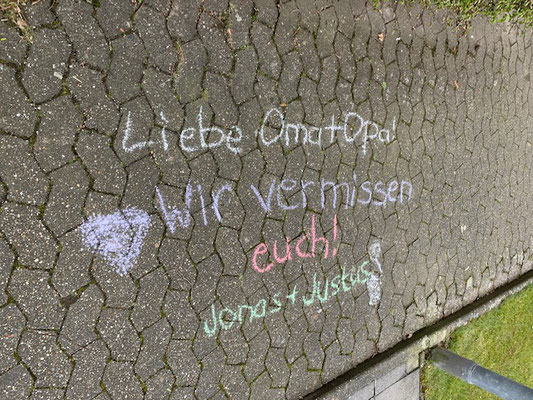 Liebe Oma+Opa!
Wir vermissen
euch!
Jonas + Justus